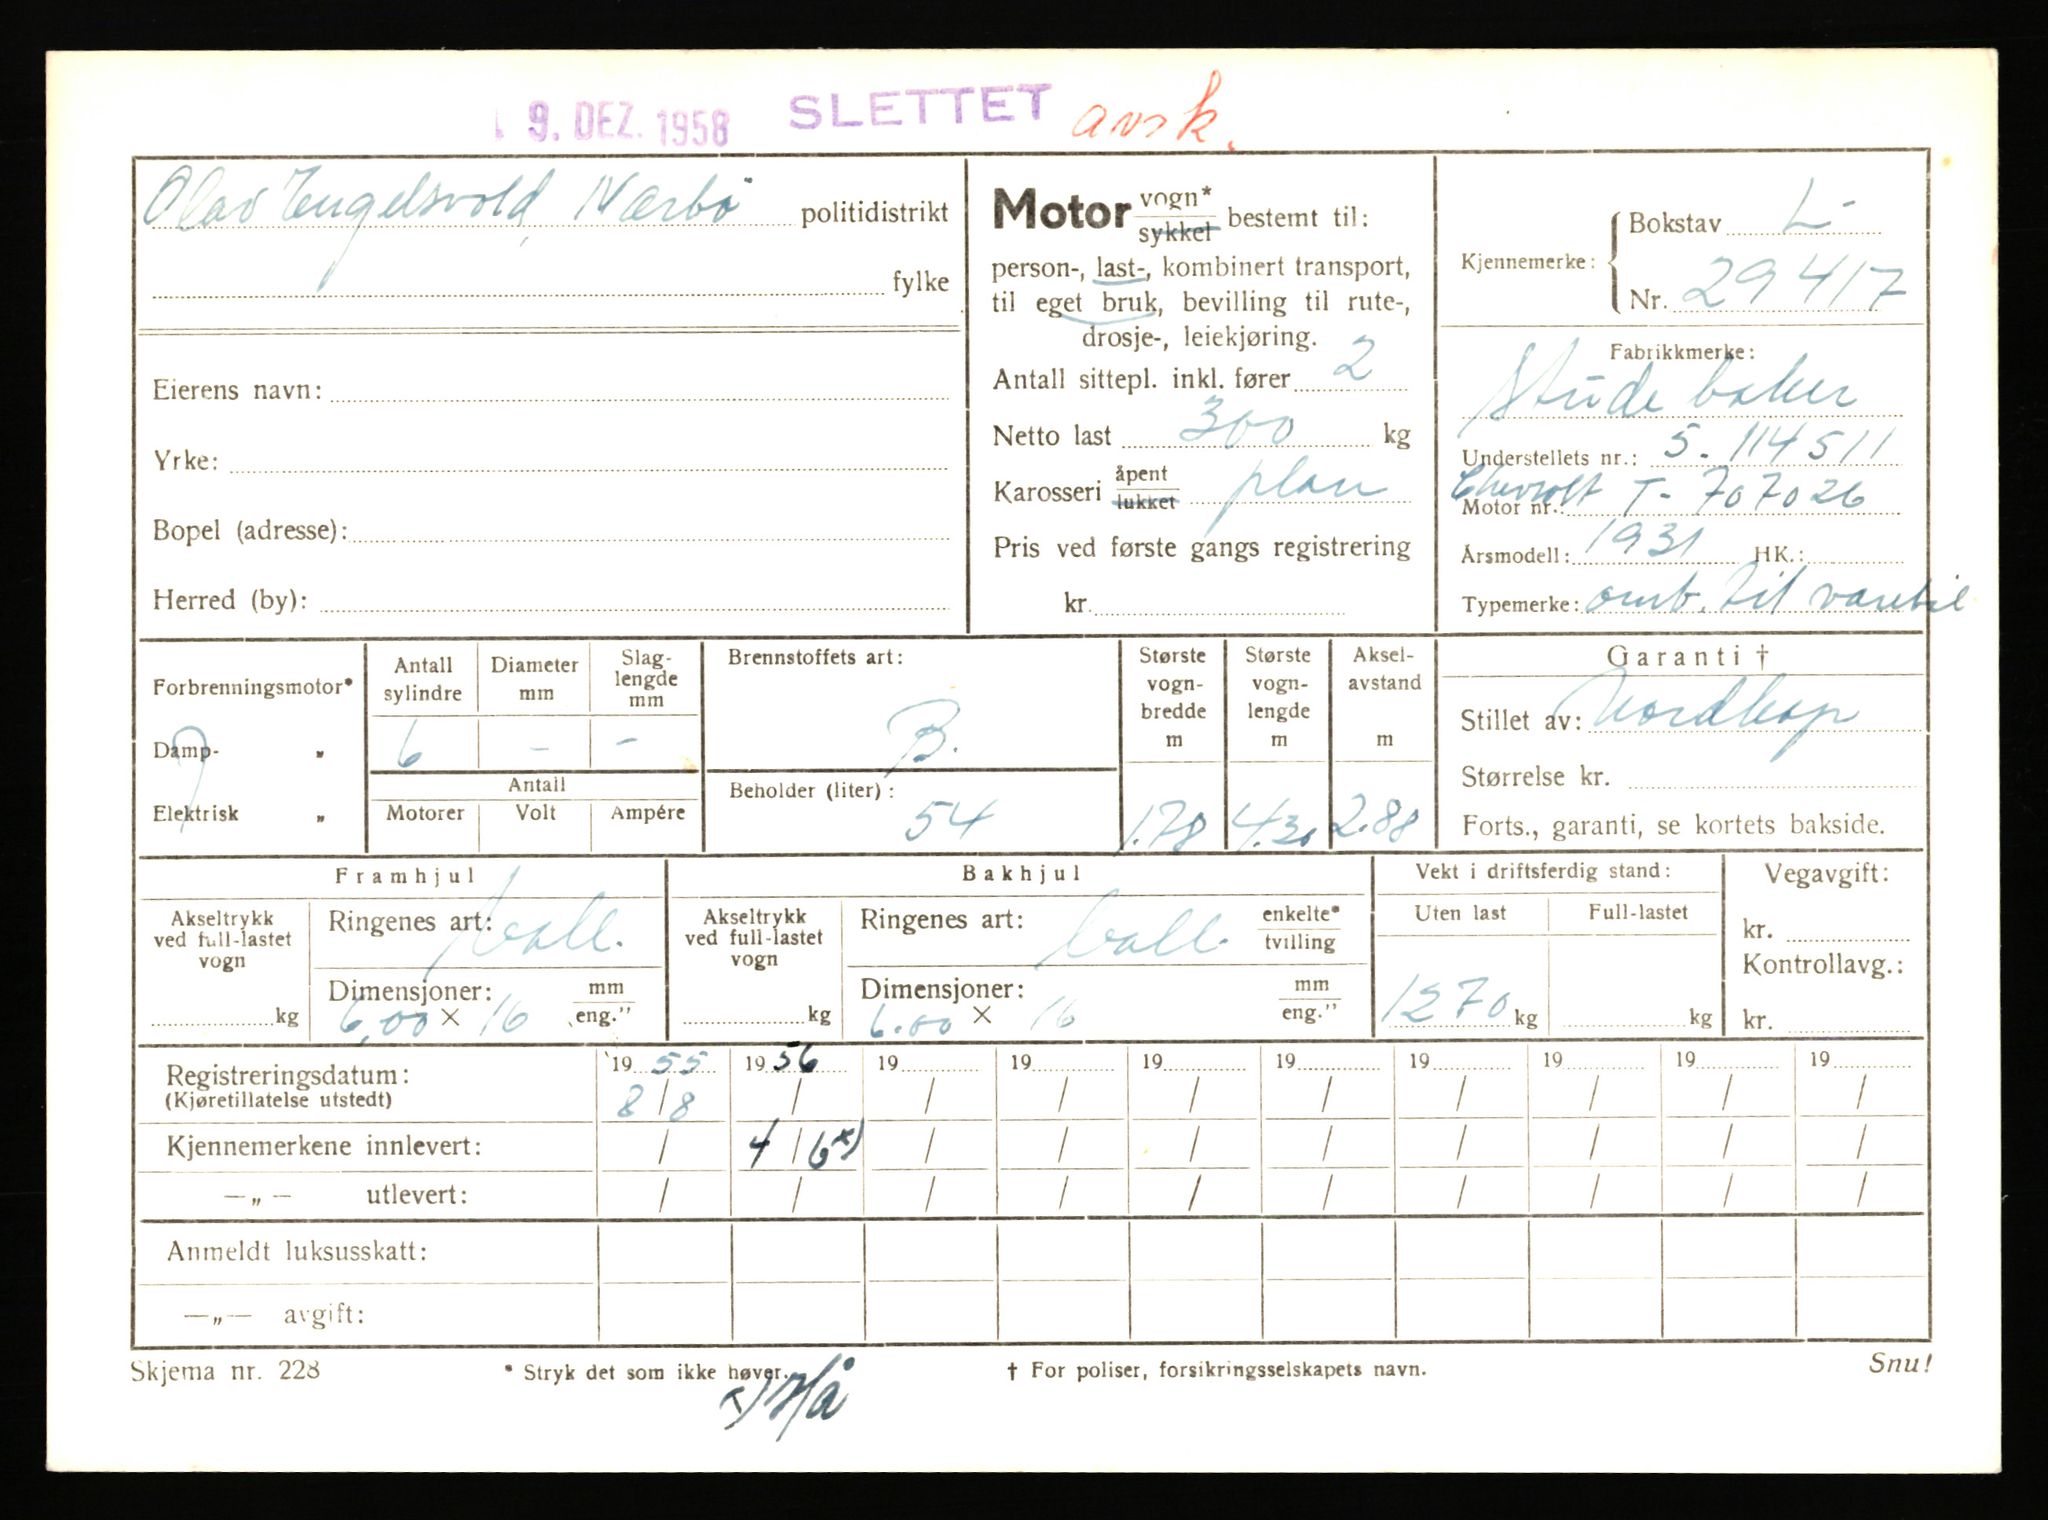 9. DEZ. 1958 SLETTET avsk.
Olav Engelsvold, Nærbø politidistrikt
fylke
Eierens navn:
Yrke:
Bopel (adresse):
Herred (by):
Motor vogn* sykkel bestemt til:
person-, last-, kombinert transport,
til eget bruk, bevilling til rute-,
drosje-, leiekjøring.
Antall sittepl. inkl. fører 2
Netto last 300 kg
Karosseri åpent lukket plan
Pris ved første gangs registrering
kr.
Kjennemerke: Bokstav L-
Nr. 29417
Fabrikkmerke:
Studebaker
Understellets nr.: 5-114511
Chevrolt
Motor nr.: T-707026
Årsmodell: 1931 HK.:
Typemerke: omb. til varebil
Forbrenningsmotor*
Damp- „
Elektrisk „
Antall sylindre
Diameter mm
Slag-lengde mm
6 - -
Antall
Motorer Volt Ampére
Brennstoffets art:
B.
Beholder (liter):
54
Største vogn-bredde m
1.78
Største vogn-lengde m
4.30
Aksel-avstand m
2.88
Garanti †
Stillet av: Nordkap
Størrelse kr.
Forts., garanti, se kortets bakside.
Framhjul
Akseltrykk ved full-lastet vogn
kg
Ringenes art: ball.
Dimensjoner: mm
6,00 × 16 eng."
Bakhjul
Akseltrykk ved full-lastet vogn
kg
Ringenes art: ball. enkelte* tvilling
Dimensjoner: mm
6.00 × 16 eng."
Vekt i driftsferdig stand:
Uten last Full-lastet
1270 kg kg
Vegavgift:
kr.
Kontrollavg.:
kr.
19 55 19 56 19 19 19 19 19 19 19 19
Registreringsdatum:
(Kjøretillatelse utstedt) 8/8 / / / / / / / / /
Kjennemerkene innlevert: / 4/6 x) / / / / / / / /
—„— utlevert: / / / / / / / / / /
Anmeldt luksusskatt:
—„— avgift:
Skjema nr. 228 * Stryk det som ikke høver. † For poliser, forsikringsselskapets navn. Snu!